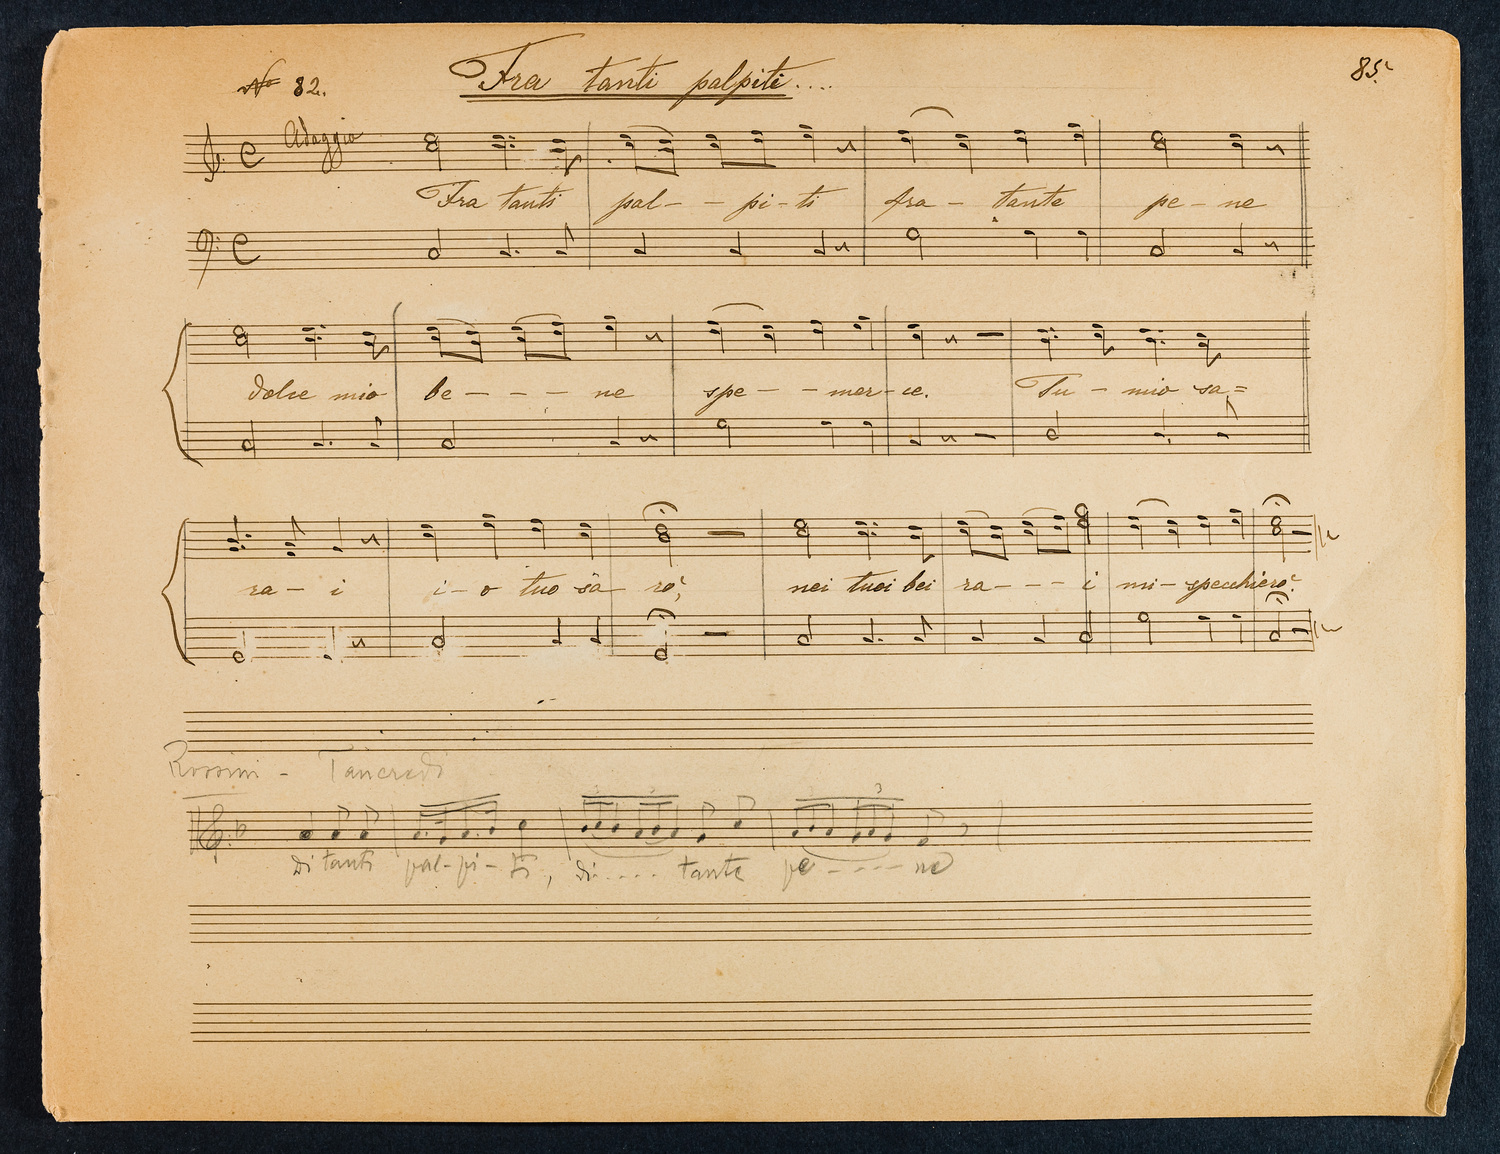 No 82. Fra tanti palpiti.... 85.
Adaggio
Fra tanti pal - - pi - ti fra - tante pe - ne
dolce mio be - - - - ne spe - - mer - ce. Tu - mio sa =
ra - i i - o tuo sa ro, nei tuoi bei ra - - - i mi - specchierò.
Rossini - Tancredi
3
3
Di tanti pal - pi - ti, di.... tante pe - - - - ne